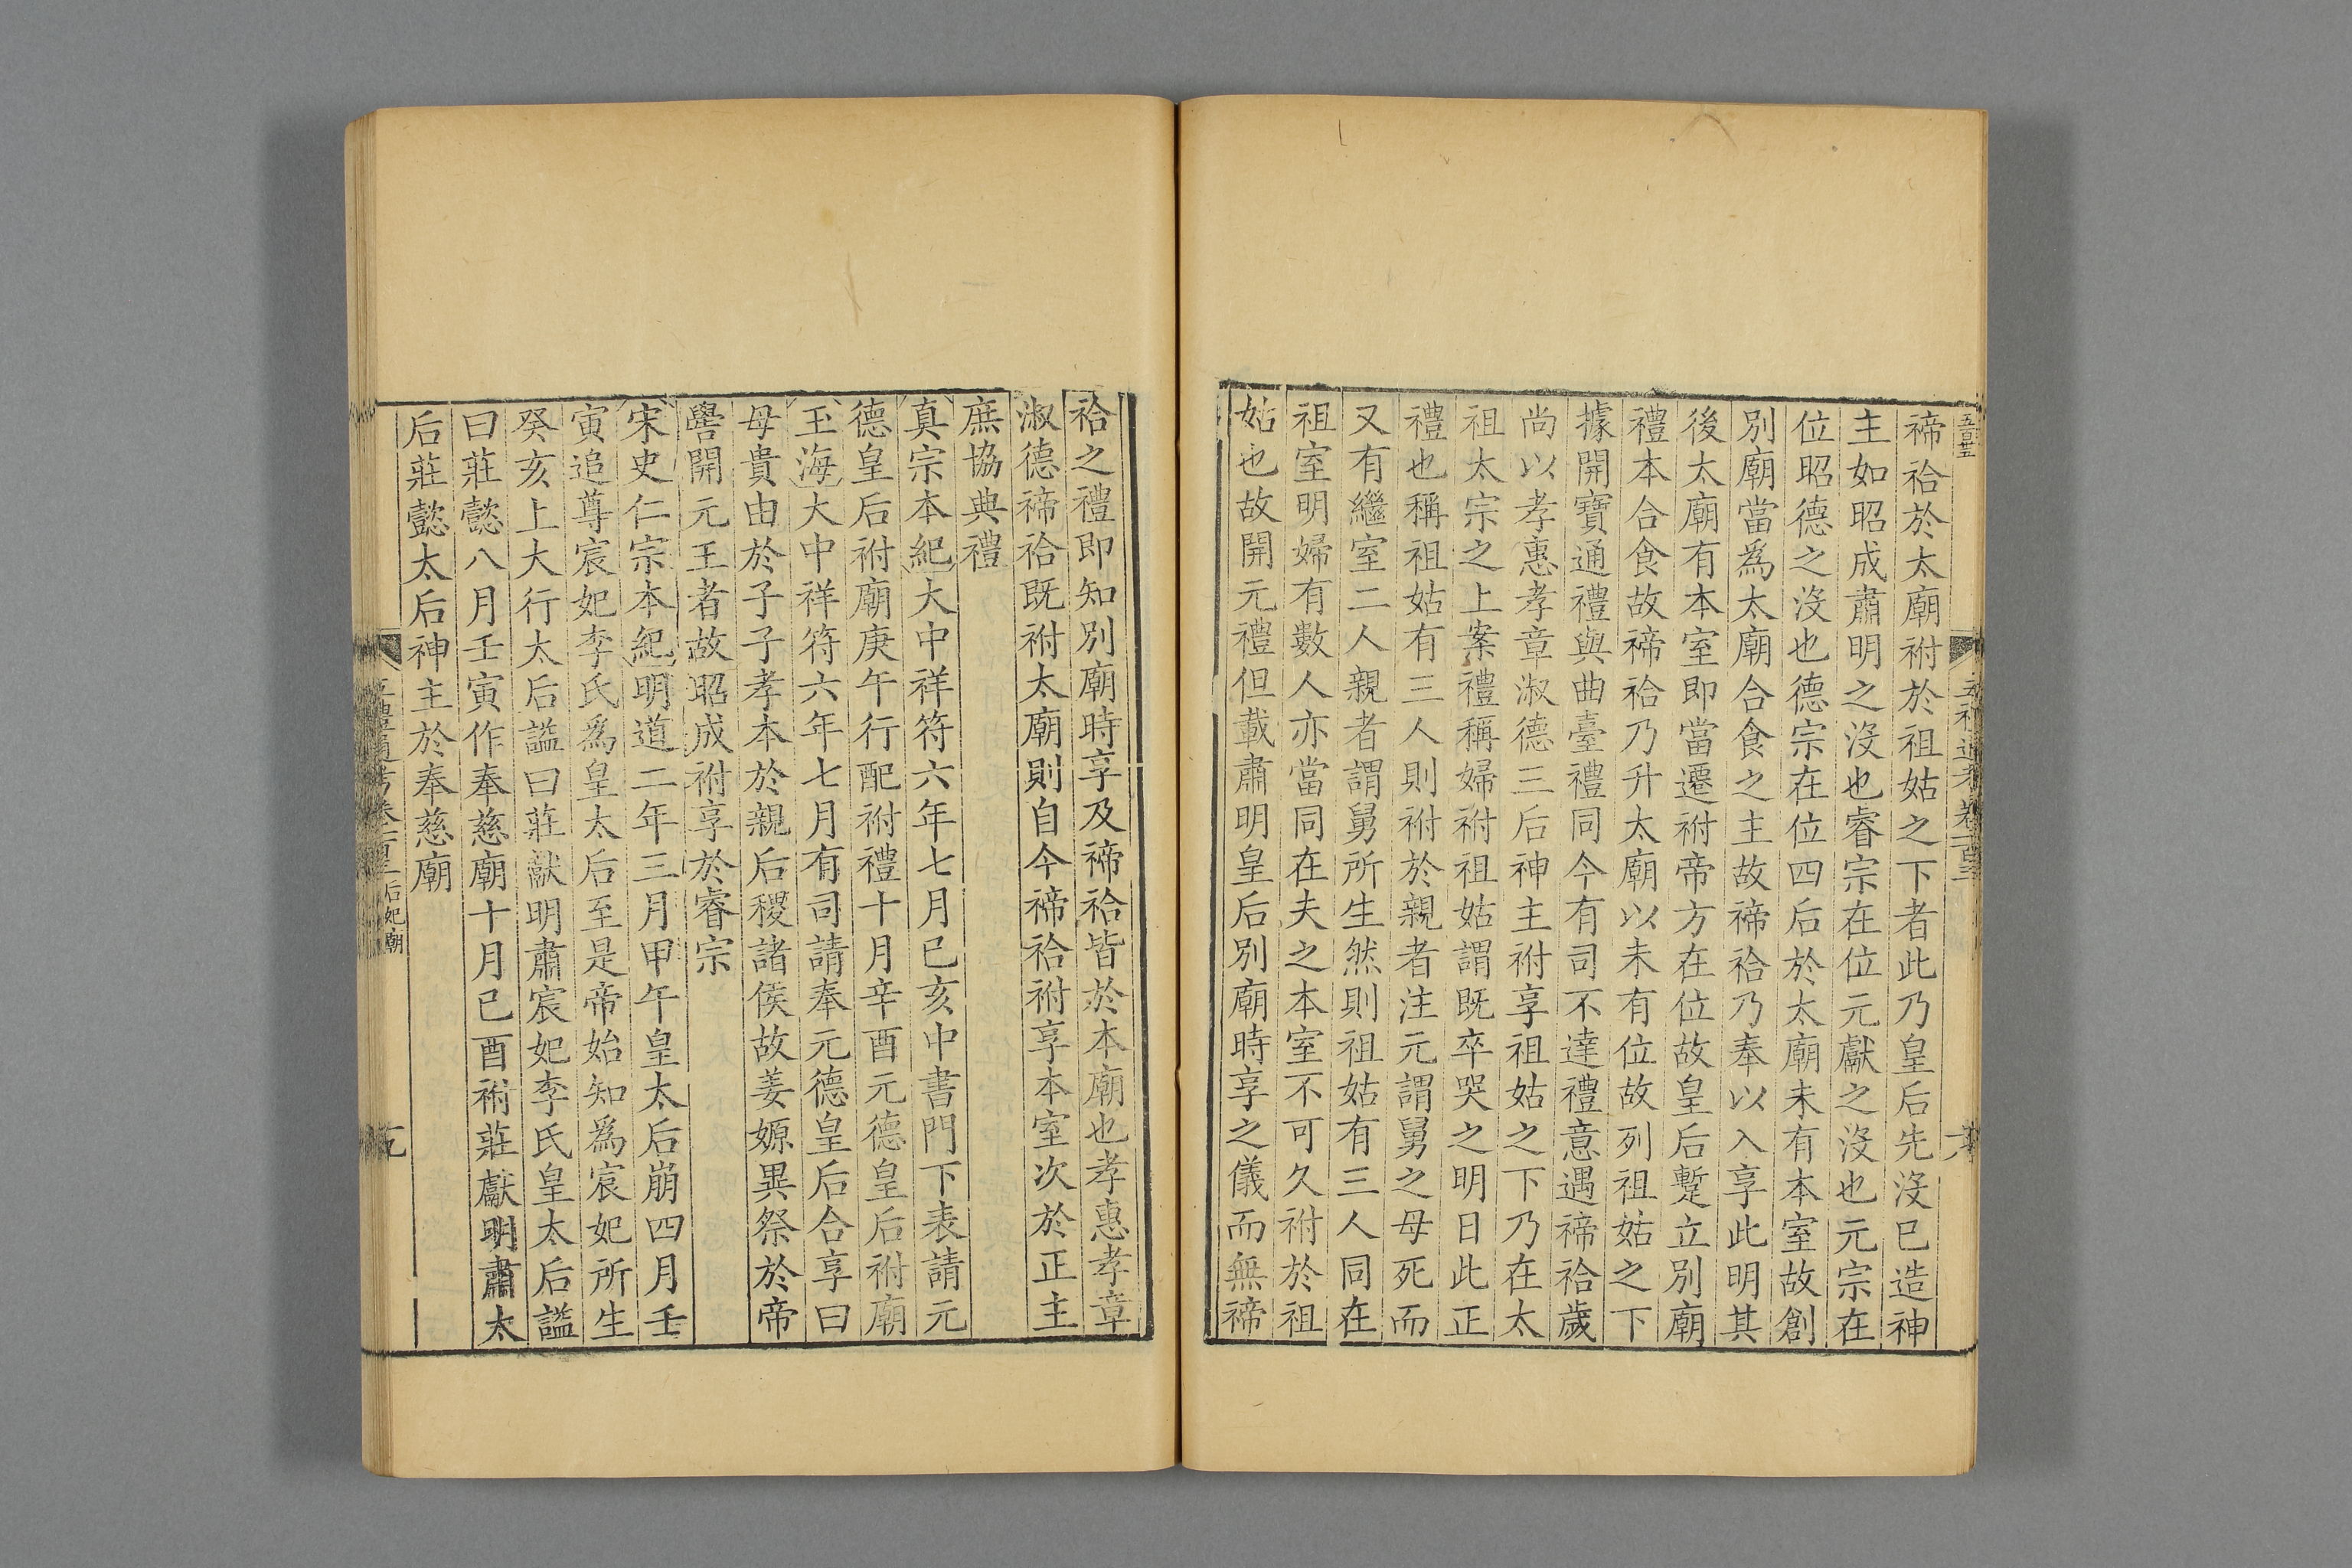 五百廿五
禘祫於太廟祔於祖姑之下者此乃皇后先沒已造神
主如昭成肅明之沒也睿宗在位元獻之沒也元宗在
位昭德之沒也德宗在位四后於太廟未有本室故創
別廟當為太廟合食之主故禘祫乃奉以入享此明其
後太廟有本室即當遷祔帝方在位故皇后蹔立別廟
禮本合食故禘祫乃升太廟以未有位故列祖姑之下
據開寶通禮與曲臺禮同今有司不達禮意遇禘祫歲
尚以孝惠孝章淑德三后神主祔享祖姑之下乃在太
祖太宗之上案禮稱婦祔祖姑謂既卒哭之明日此正
禮也稱祖姑有三人則祔於親者注元謂舅之母死而
又有繼室二人親者謂舅所生然則祖姑有三人同在
祖室明婦有數人亦當同在夫之本室不可久祔於祖
姑也故開元禮但載肅明皇后別廟時享之儀而無禘
祫之禮即知別廟時享及禘祫皆於本廟也孝惠孝章
淑德禘祫既祔太廟則自今禘祫祔享本室次於正主
庶協典禮
真宗本紀大中祥符六年七月已亥中書門下表請元
德皇后祔廟庚午行配祔禮十月辛酉元德皇后祔廟
王海大中祥符六年七月有司請奉元德皇后合享曰
母貴由於子子孝本於親后稷諸侯故姜嫄異祭於帝
嚳開元王者故昭成祔享於睿宗
宋史仁宗本紀明道二年三月甲午皇太后崩四月壬
寅追尊宸妃李氏為皇太后至是帝始知為宸妃所生
癸亥上大行太后謚曰莊獻明肅宸妃李氏皇太后謚
曰莊懿八月壬寅作奉慈廟十月已酉祔莊獻明肅太
后莊懿太后神主於奉慈廟
后妃廟
五